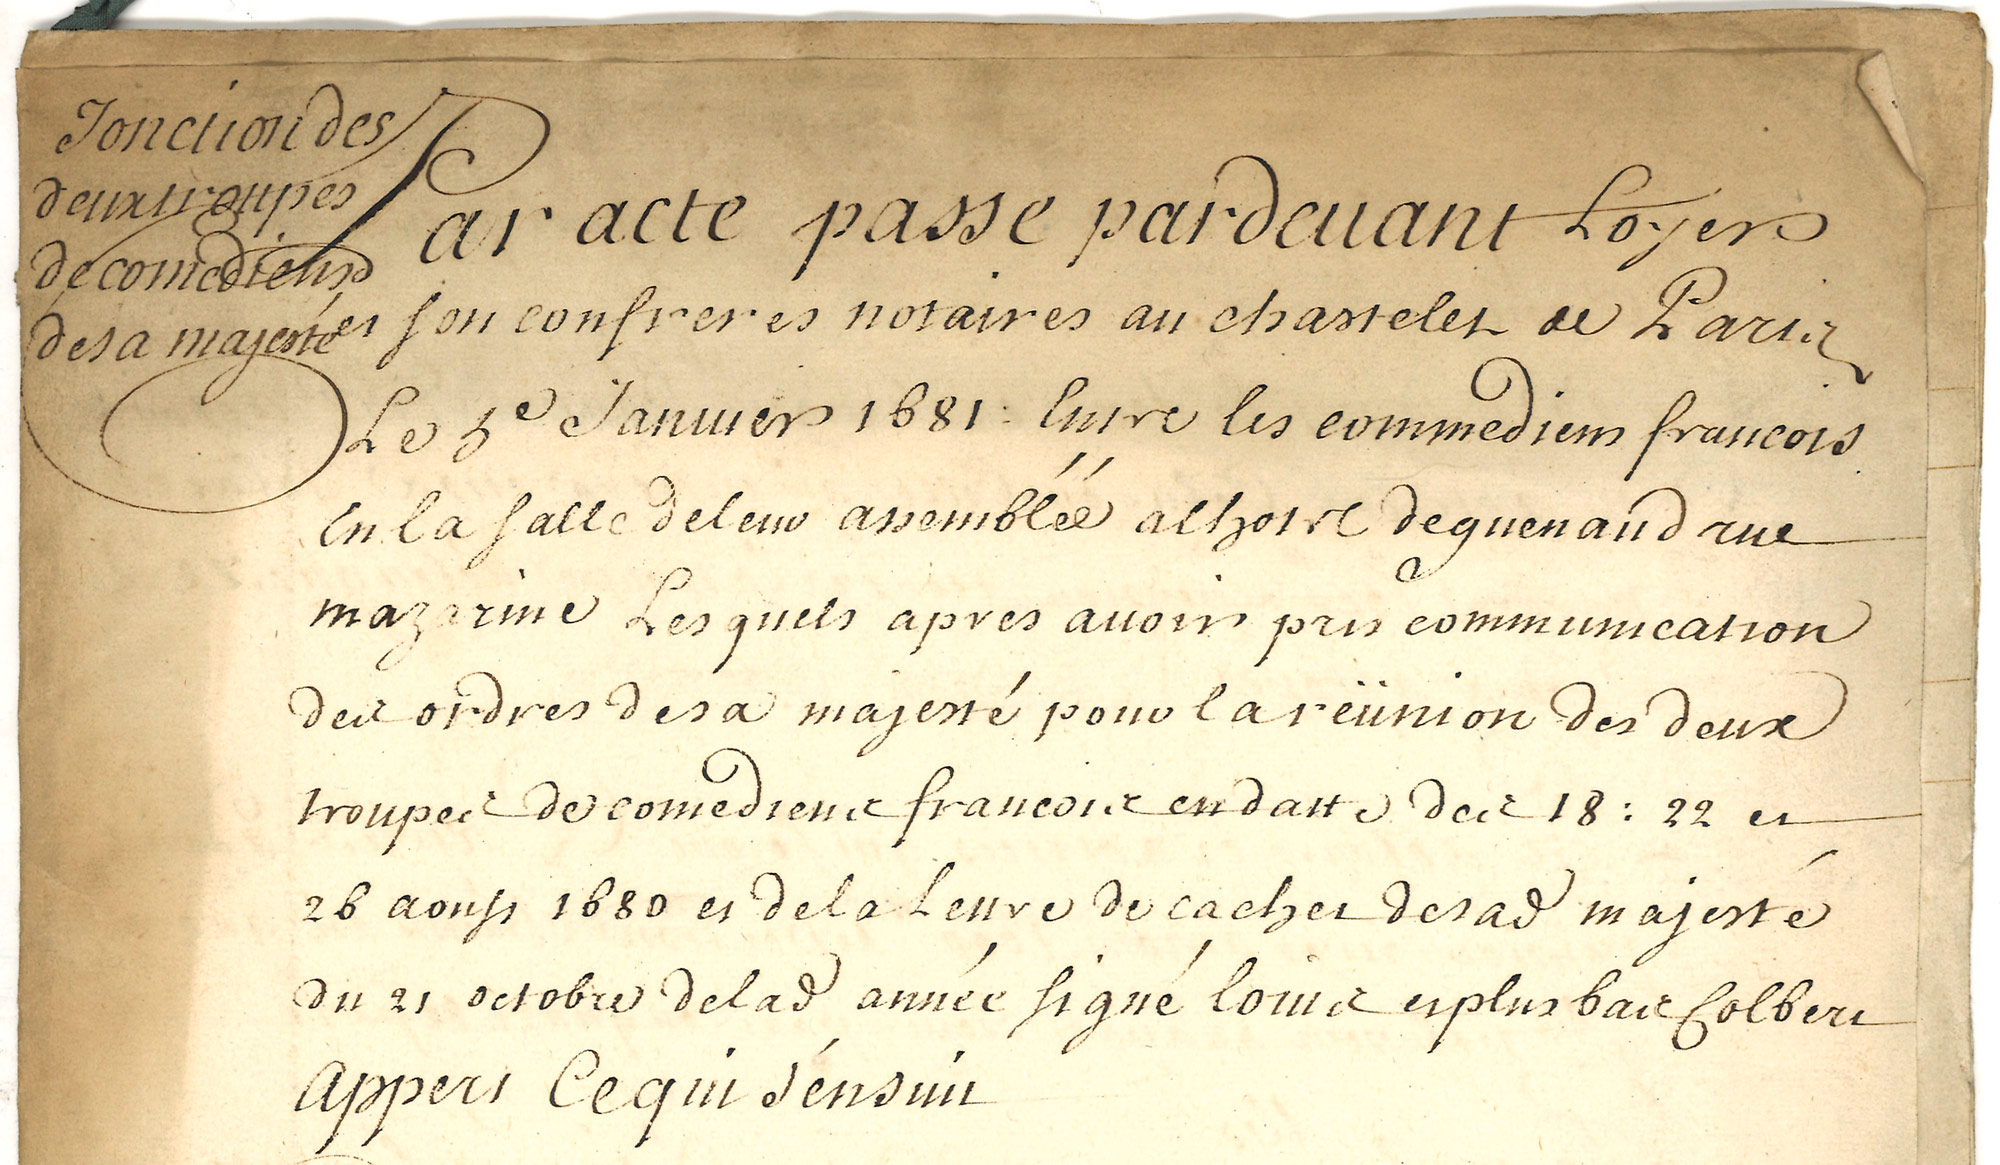 Jonction des
deux troupes
de comediens
de sa majesté
Par acte passe pardeuant Loyer
et son confreres notaires au chastelet de Paris
Le 5e Januier 1681 : Entre les commediens francois
En la salle de leur assembléé a lhotel de guenaud rue
mazarine Lesquels apres auoir pris communication
des ordres de sa majesté pour la reünion des deux
troupes de comediens francois en datte des 18 : 22 et
26 aoust 1680 et de la Lettre de cachet de sad majesté
du 21 octobre de lad année signé louis et plus bas Colbert
Appert Ce qui s'ensuit